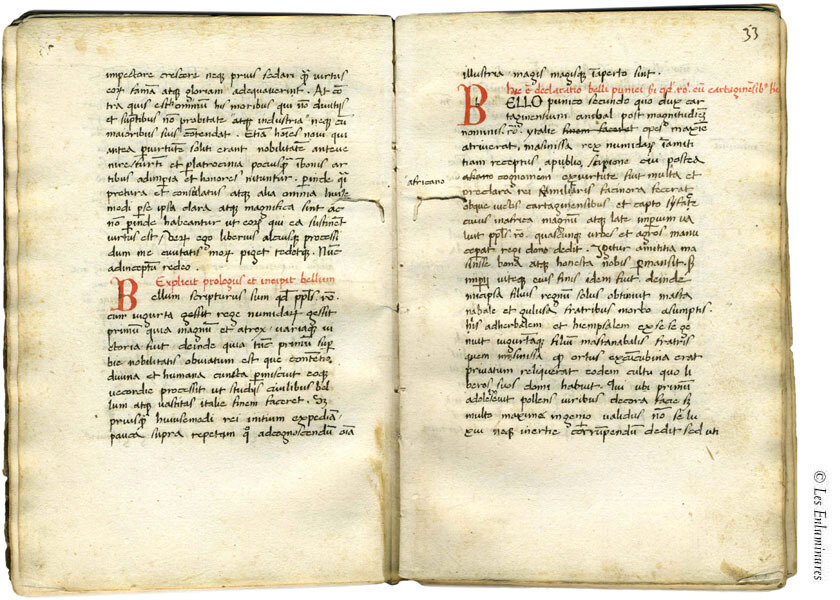 impectore crescere neqȝ prius sedari qͣ virtus
eoꝝ fama atqȝ gloriam adequaverint. At cō
tra quis est omniuȝ his moribus qui nō divitijs
et sūptibus nō probitate atqȝ industria neqȝ cū
maioribus suis cōtendat. Etiā hoīes novi qui
antea p virtutem soliti erant nobilitatē anteve
nire furtī et platrocinia potiusqȝ ībonis ar
tibus adimpia et honores nituntur. perinde qͣ
pretura et cōsulatus atqȝ alia omnia huiusce
modi p se ipsa clara atqȝ magnifica sint ac
nō perinde habeantur ut eoꝝ qui ea sustinent
virtus est. Veꝝ ego liberius alciusqȝ processi
dum me civitatis morȝ piget tedetqȝ. Nūc
adinceptū redeo.
Explicit prologus et incipit bellum
Bellum scripturus sum qd̄ ppl̄s. ro.
cum iugurta gessit rege numidaꝝ gessit
primū quia magnū et atrox variaqȝ vi
ctoria fuit deinde quia tūc primū supͥ
bie nobilitatis obviatum est que contentio
divina et humana cuncta pmiscuit eoqȝ
vecordie processit ut studijs civilibus bel
lum atqȝ vastitas italie finem faceret. Sȝ
priusqȝ huiusemodi rei initium expediā
pauca supra repetam qͦ adcognoscendū oīa
33
illustria magis magisqȝ īaperto sint.
hic ē declaratio belli punici
BELLO punico secundo quo dux car
taginensium anibal post magnitudiē
nominis. ro. ytalie finem faceret opes maxīe
atriverat, masinissa rex numidaꝝ īamiti
tiam receptus apublio, scipione cui postea
africano
africano cognomen exvirtute fuit multa et
preclara rei militaris facinora fecerat
obque victis cartaginensibus et capto syface
cuius inafrica magnū atqȝ late imperium va
luit ppl̄s. ro. quascunqȝ urbes et agros manu
ceperat regi dono dedit. Igitur amicitia ma
sinisse bona atqȝ honesta nobis permansit. sȝ
imperij viteqȝ eius finis idem fuit. deinde
micipsa filius regnū solus obtinuit masta
nabale et gulussa fratribus morbo asumptis.
his adherbalem et hiempsalem ex se se ge
nuit iugurtāqȝ filiū mastanabalis fratris
quem masinissa qͣ ortus exconcubina erat
privatum reliquerat eodem cultu quo li
beros suos domi habuit. Qui ubi primū
adolevit pollens viribus decora facie sȝ
multo maxime ingenio validus nō se lu
xui neqȝ inertie corrumpendum dedit sed uti
© Les Enluminures